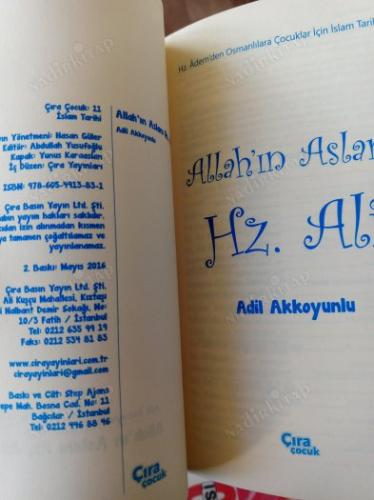 Çıra Çocuk: 11
İslam Tarihi
Yayın Yönetmeni: Hasan Güler
Editör: Abdullah Yusufoğlu
Kapak: Yunus Karaaslan
İç Düzen: Çıra Yayınları
ISBN: 978-605-4913-83-1
Çıra Basın Yayın Ltd. Şti.
yayım hakları saklıdır.
izin alınmadan kısmen
tamamen çoğaltılamaz ve
yayınlanamaz.
2. Baskı: Mayıs 2016
Çıra Basın Yayın Ltd. Şti.
Ali Kuşçu Mahallesi, Kıztaşı
Nalbant Demir Sokağı, No:
10/3 Fatih / İstanbul
Tel: 0212 635 49 19
Faks: 0212 534 81 83
www.cirayayinlari.com.tr
cirayayinlari@gmail.com
Baskı ve Cilt: Step Ajans
Mah. Bosna Cad. No: 11
Bağcılar / İstanbul
Tel: 0212 446 88 46
Allah'ın Aslanı
Adil Akkoyunlu
Çıra
çocuk
Hz. Âdem'den Osmanlılara Çocuklar İçin İslam Tarihi
Allah'ın Aslanı
Hz. Ali
Adil Akkoyunlu
Çıra
çocuk
nadirkitap